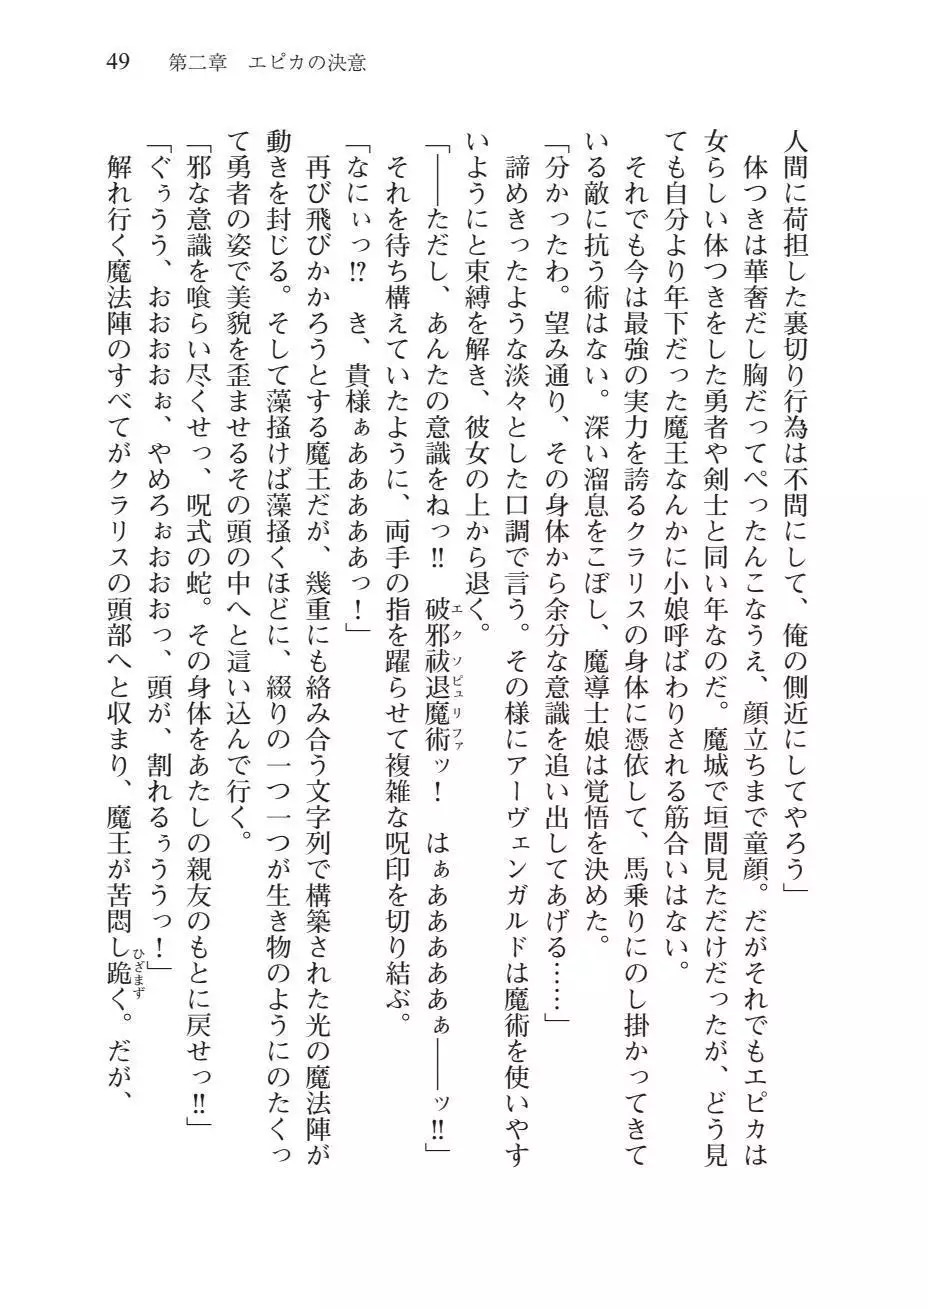 49　第二章　エピカの決意
人間に荷担した裏切り行為は不問にして、俺の側近にしてやろう」
　体つきは華奢だし胸だってぺったんこなうえ、顔立ちまで童顔。だがそれでもエピカは
女らしい体つきをした勇者や剣士と同い年なのだ。魔城で垣間見ただけだったが、どう見
ても自分より年下だった魔王なんかに小娘呼ばわりされる筋合いはない。
　それでも今は最強の実力を誇るクラリスの身体に憑依して、馬乗りにのし掛かってきて
いる敵に抗う術はない。深い溜息をこぼし、魔導士娘は覚悟を決めた。
「分かったわ。望み通り、その身体から余分な意識を追い出してあげる……」
　諦めきったような淡々とした口調で言う。その様にアーヴェンガルドは魔術を使いやす
いようにと束縛を解き、彼女の上から退く。
「――ただし、あんたの意識をねっ!!　破邪祓退魔術ッ！　はぁああああぁ――ッ!!」
エクソピュリファ
　それを待ち構えていたように、両手の指を躍らせて複雑な呪印を切り結ぶ。
「なにぃっ!?　き、貴様ぁああああっ！」
　再び飛びかかろうとする魔王だが、幾重にも絡み合う文字列で構築された光の魔法陣が
動きを封じる。そして藻掻けば藻掻くほどに、綴りの一つ一つが生き物のようにのたくっ
て勇者の姿で美貌を歪ませるその頭の中へと這い込んで行く。
「邪な意識を喰らい尽くせっ、呪式の蛇。その身体をあたしの親友のもとに戻せっ!!」
「ぐぅうう、おおおぉ、やめろぉおおおっ、頭が、割れるぅううっ！」
　解れ行く魔法陣のすべてがクラリスの頭部へと収まり、魔王が苦悶し跪く。だが、
ひざまず